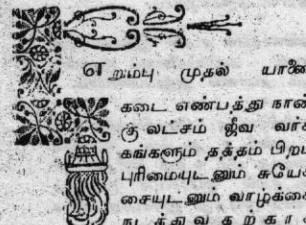 எறும்பு முதல் யானை
கடை எண்பத்து நான்
கு லட்சம் ஜீவ வர்க்
கங்களும் தத்தம் பிறப்
புரிமையுடனும் சுயேச்
சையுடனும் வாழ்க்கை
நடத்துவதற்காக